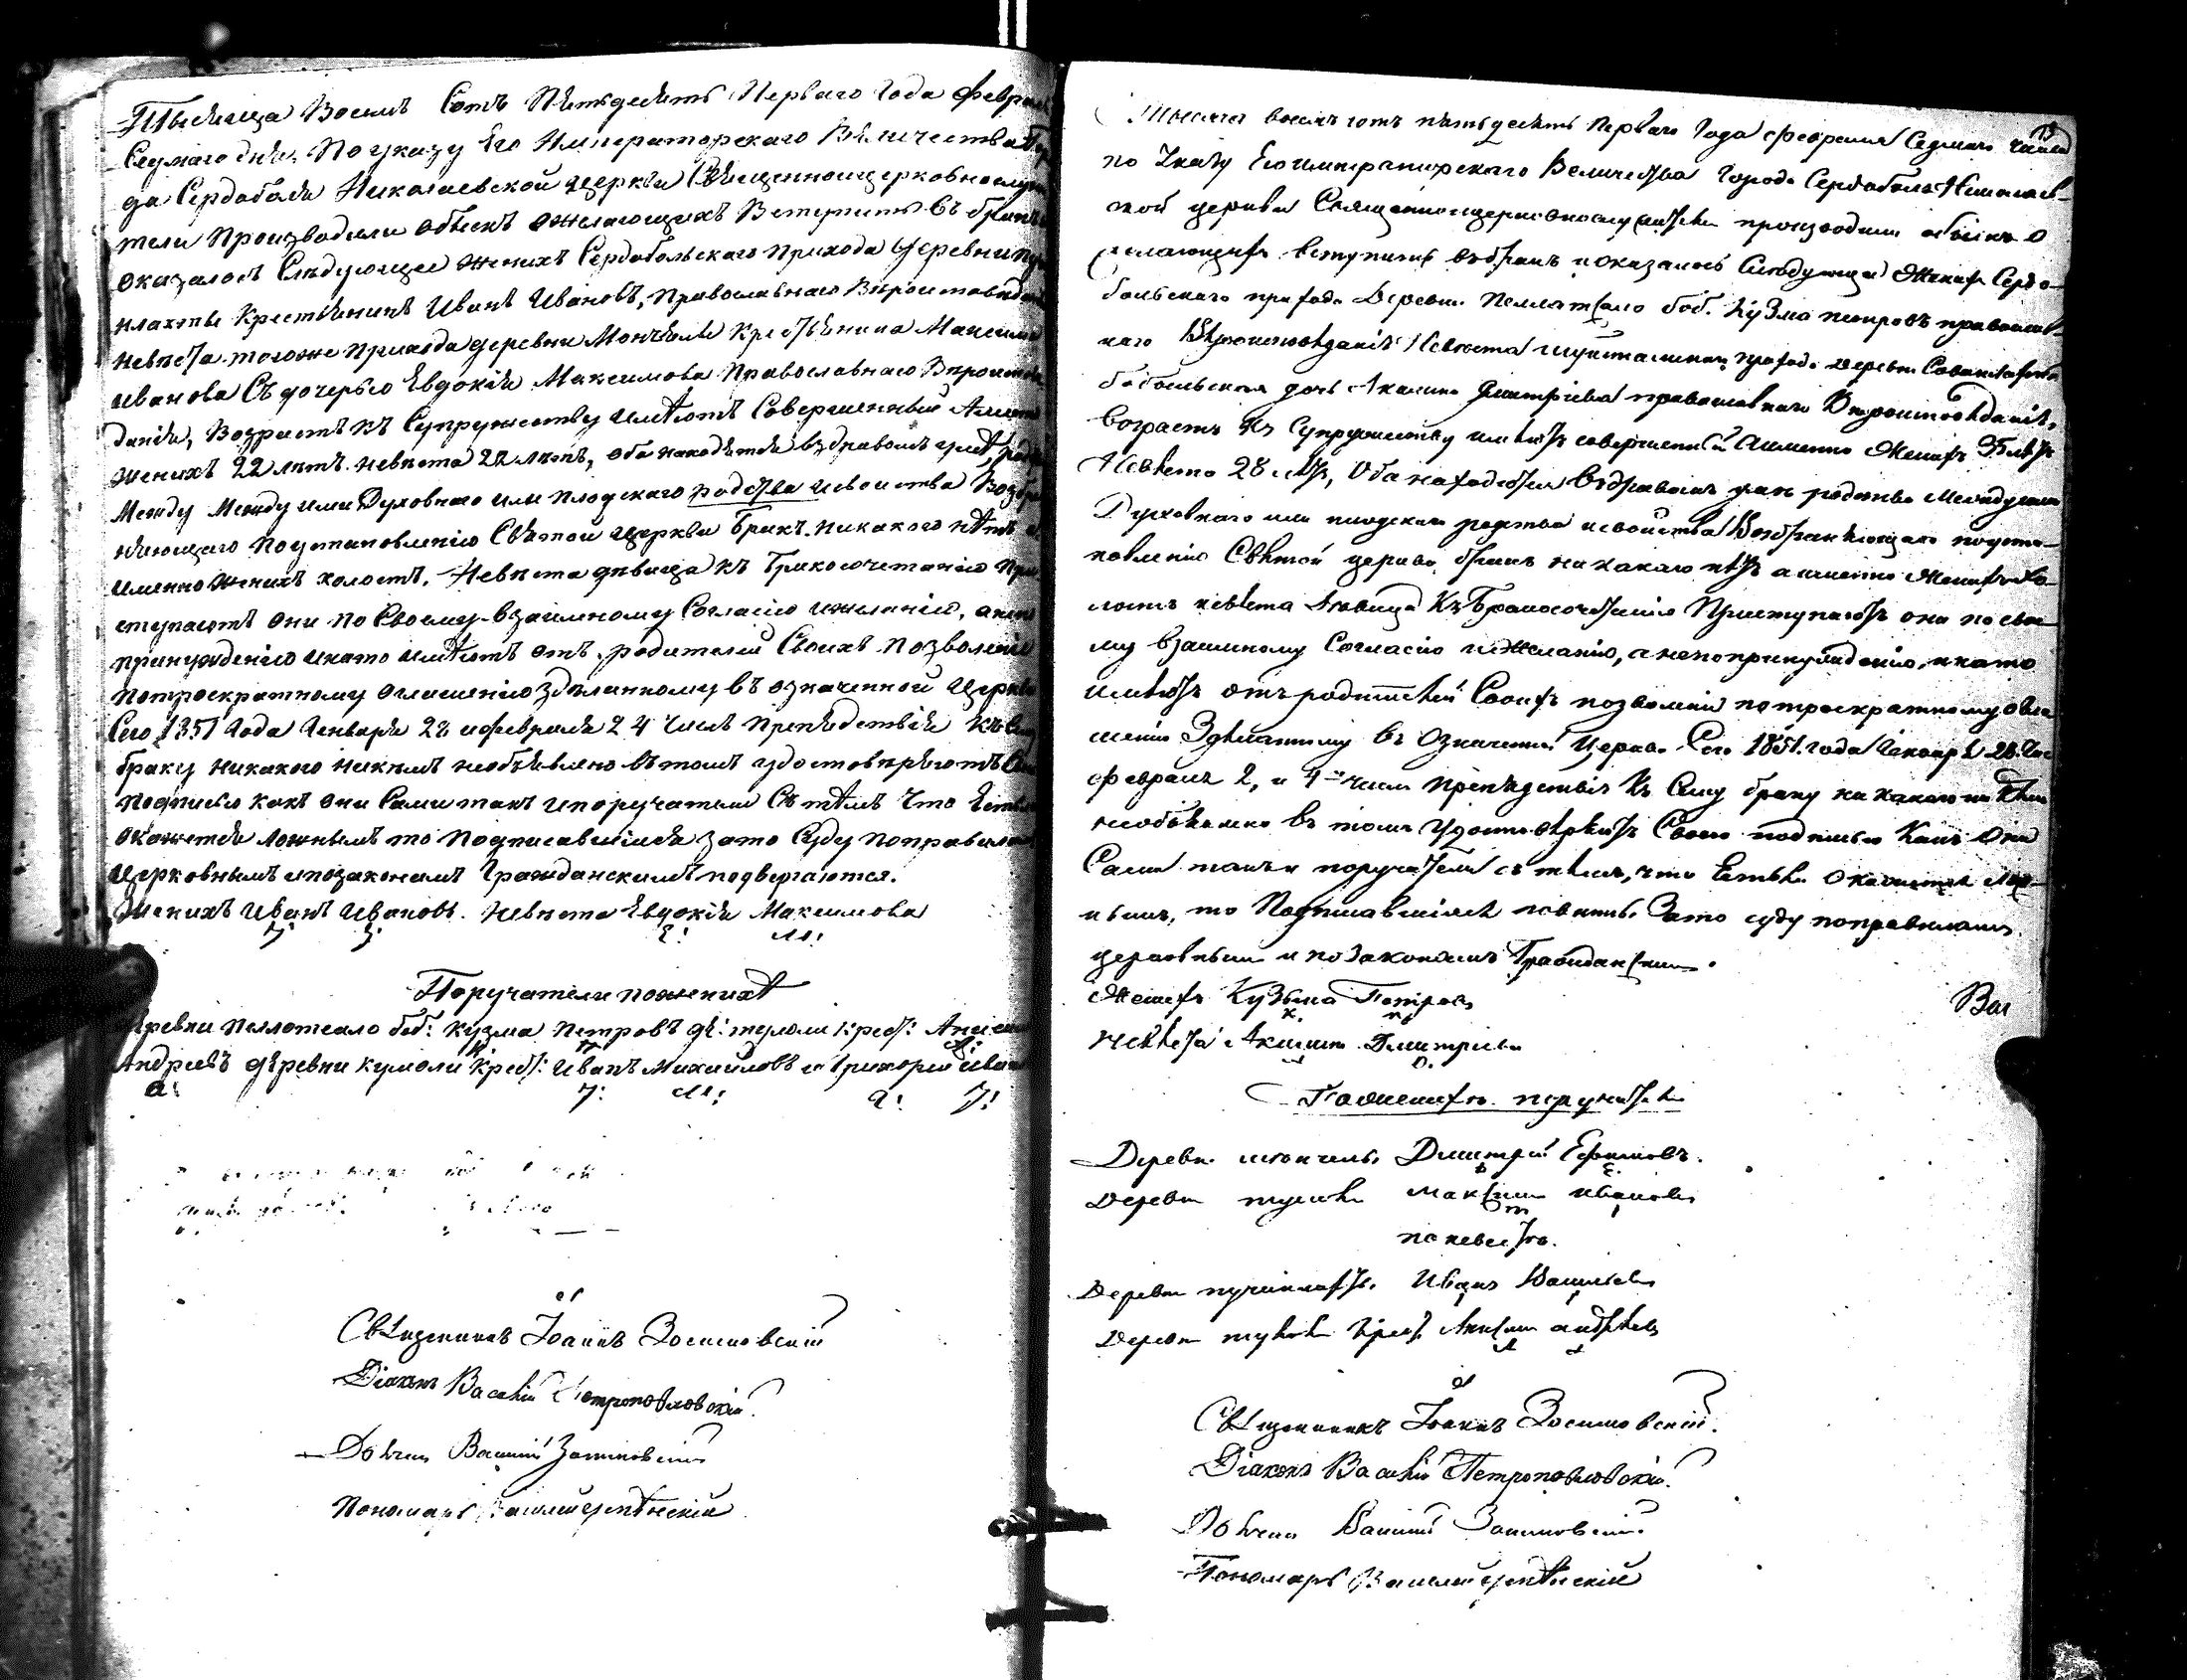 Тысяща Восемь Сотъ Пятьдесятъ Перваго Года Февраля
Седмаго дня, По указу Его Императорскаго Величества
да Сердоболя Николаевской церкви Священноцерковнослужи
тели Производили обыскъ о желающихъ Вступить въ бракъ
оказалось Слѣдующее женихъ Сердобольскаго Прихода Деревни
лахты Крестьянинъ Иванъ Ивановъ, Православнаго Вѣроисповѣданія
невѣста тогоже Прихода деревни Крестьянина Максима
Иванова Съ дочерью Евдокія Максимова Православнаго Вѣроисповѣ
данія, Возрастъ къ Супружеству имѣютъ Совершенный Аименно
женихъ 22 лѣтъ. невѣста 22 лѣтъ, оба находятся въ здравомъ умѣ
Между Между ими Духовнаго или плодскаго родства исвойства Возбра
няющаго по установленію Святой церкви бракъ. никакого нѣтъ, а
именно женихъ холостъ, Невѣста дѣвица къ Бракосочетанію При
ступаютъ они по Своему взаимному Согласію ижеланію, а непо
принужденію инато имѣютъ отъ родителей Своихъ Позволеніе
потроекратному оглашенію здѣланному въ означенной Церкви
Сего 1851 Года Генваря 28 ифевраля 2 4 числъ Препядствія къ Сему
браку никакого никѣмъ необъявлено вътомъ удостовѣряютъ Своею
подписью какъ они Сами такъ ипоручатели Съ тѣмъ Что Естьли
окажется ложнымъ то Подписавшіися зато Суду поправиламъ
Церковнымъ ипозаконамъ Гражданскимъ подвергаются.
Женихъ Иванъ Ивановъ. Невѣста Евдокія Максимова
Е: М:
Поручатели поженихѣ
Деревни Пеллотсало боб: Кузма Петровъ де: тулоли Крест: Аксен
К П А:
Андреевъ деревни кумоли Крест: Иванъ Михайловъ и Григорей Иван
А: I: М: Г: I:
Священникъ Іоаннъ Зосимовскій
Діаконъ Василій Петропавловскій.
Дьячекъ Василій Зотиковскій
Пономарь Василій
13
Тысяча восемь сотъ пятьдесятъ Перваго Года февраля Седмаго числа
по Указу Его императорскаго Величества Города Сердоболя Николаев-
ской церкви Священноицерковнослужители производили обыскъ о
желающихъ вступить въ бракъ и оказалось Слѣдующее Женихъ Сердо-
больскаго прихода Деревни Пеллотсало боб. Кузма петровъ православ-
наго Вѣроисповѣданія Невѣста прихода деревни
бобыльская дочь Акилина Дмитріева православнаго Вѣроисповѣданія,
Возрастъ къ Супружеству имѣютъ совершенный Аименно Женихъ лѣтъ
Невѣста 28 лѣтъ, Оба находятся въ здравомъ умѣ родства Междуими
Духовнаго или плодскаго родства исвойства Возбраняющаго поуста-
новленію Святой церкви бракъ никакаго нѣтъ аименно Женихъ хо-
лостъ невѣста дѣвица Къ Бракосочетанію Приступаютъ они по сво
му взаимному Согласію ижеланію, а непопринужденію, инато
имѣютъ отъ родителей Своихъ позволеніе потроекратному огла
шенію Здѣланному въ Означенной Церкви Сего 1851. года Генваря 28.
февраля 2, и 4го числъ препядствія къ Сему браку никакого никѣмъ
необъявлено въ томъ Удостовѣряютъ Своею подписью Какъ Они
Сами такъ и поручатели съ тѣмъ, что Естьли окажется лож-
нымъ, то Подписавшіися повинны Зато суду поправиламъ
церковнымъ и позаконамъ Гражданскимъ.
Женихъ Кузьма Петровъ
К. П
Невѣста Акилина Дмитріева
Д.
Поженихѣ поручатели
Деревни Дмитрій Ефимовъ.
Д Е.
Деревни тулоли Максимъ Ивановъ
М
поневестѣ.
Деревни Иванъ Васильевъ
Деревни тулоли Крест. Аксенъ андреевъ
А А
Священникъ Іоаннъ Зосимовскій.
Діаконъ Василій Петропавловскій.
Дьячекъ Василій Зотиковскій
Пономарь Василій